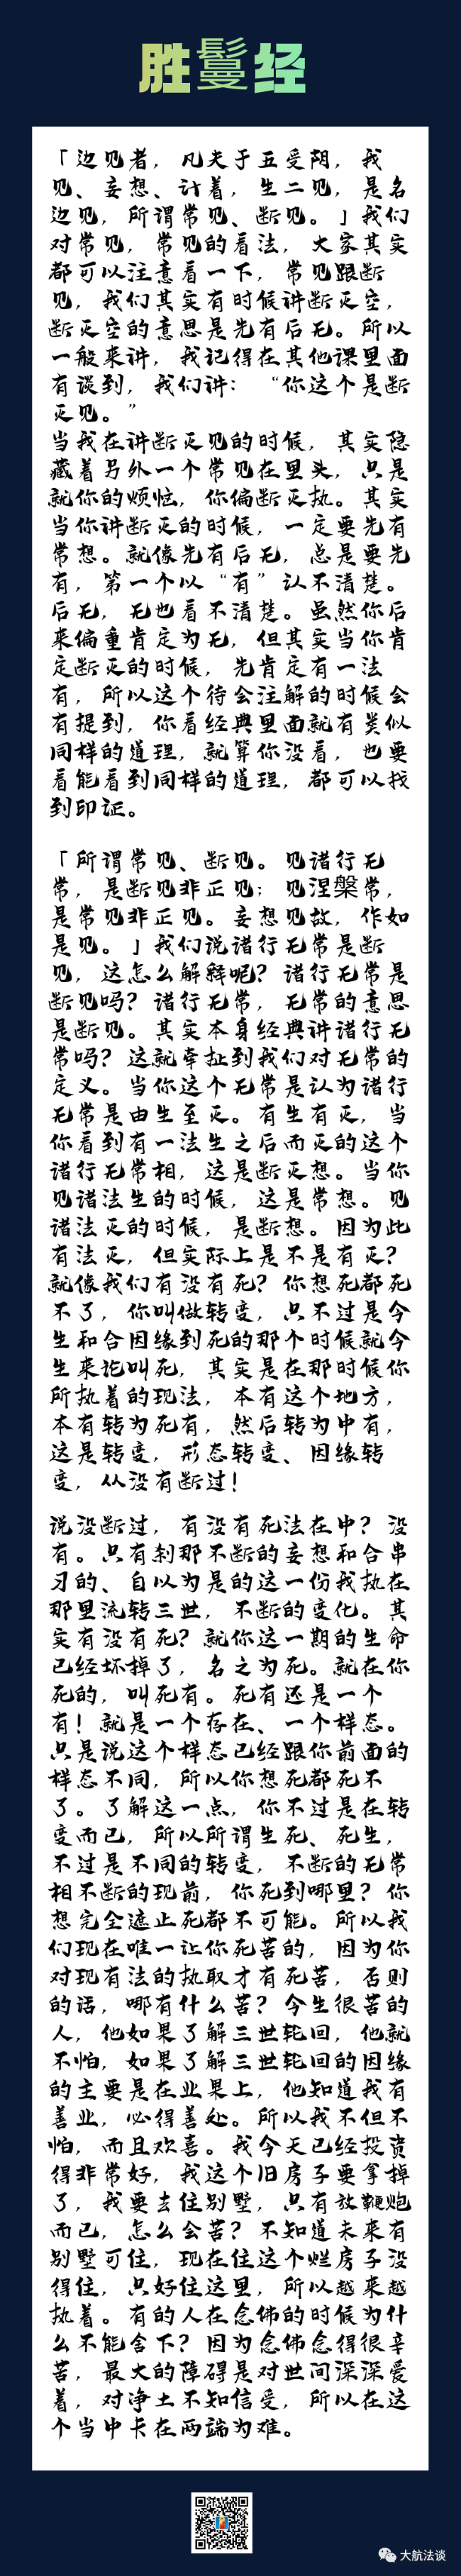 胜鬘经
「边见者，凡夫于五受阴，我
见、妄想、计着，生二见，是名
边见，所谓常见、断见。」我们
对常见，常见的看法，大家其实
都可以注意看一下，常见跟断
见，我们其实有时候讲断灭空，
断灭空的意思是先有后无。所以
一般来讲，我记得在其他课里面
有谈到，我们讲：“你这个是断
灭见。”
当我在讲断灭见的时候，其实隐
藏着另外一个常见在里头，只是
就你的烦恼，你偏断灭执。其实
当你讲断灭的时候，一定要先有
常想。就像先有后无，总是要先
有，第一个以“有”认不清楚。
后无，无也看不清楚。虽然你后
来偏重肯定为无，但其实当你肯
定断灭的时候，先肯定有一法
有，所以这个待会注解的时候会
有提到，你看经典里面就有类似
同样的道理，就算你没看，也要
看能看到同样的道理，都可以找
到印证。
「所谓常见、断见。见诸行无
常，是断见非正见；见涅槃常，
是常见非正见。妄想见故，作如
是见。」我们说诸行无常是断
见，这怎么解释呢？诸行无常是
断见吗？诸行无常，无常的意思
是断见。其实本身经典讲诸行无
常吗？这就牵扯到我们对无常的
定义。当你这个无常是认为诸行
无常是由生至灭。有生有灭，当
你看到有一法生之后而灭的这个
诸行无常相，这是断灭想。当你
见诸法生的时候，这是常想。见
诸法灭的时候，是断想。因为此
有法灭，但实际上是不是有灭？
就像我们有没有死？你想死都死
不了，你叫做转变，只不过是今
生和合因缘到死的那个时候就今
生来论叫死，其实是在那时候你
所执着的现法，本有这个地方，
本有转为死有，然后转为中有，
这是转变，形态转变、因缘转
变，从没有断过！
说没断过，有没有死法在中？没
有。只有刹那不断的妄想和合串
习的、自以为是的这一份我执在
那里流转三世，不断的变化。其
实有没有死？就你这一期的生命
已经坏掉了，名之为死。就在你
死的，叫死有。死有还是一个
有！就是一个存在、一个样态。
只是说这个样态已经跟你前面的
样态不同，所以你想死都死不
了。了解这一点，你不过是在转
变而已，所以所谓生死、死生，
不过是不同的转变，不断的无常
相不断的现前，你死到哪里？你
想完全遮止死都不可能。所以我
们现在唯一让你死苦的，因为你
对现有法的执取才有死苦，否则
的话，哪有什么苦？今生很苦的
人，他如果了解三世轮回，他就
不怕，如果了解三世轮回的因缘
的主要是在业果上，他知道我有
善业，必得善处。所以我不但不
怕，而且欢喜。我今天已经投资
得非常好，我这个旧房子要拿掉
了，我要去住别墅，只有放鞭炮
而已，怎么会苦？不知道未来有
别墅可住，现在住这个烂房子没
得住，只好住这里，所以越来越
执着。有的人在念佛的时候为什
么不能舍下？因为念佛念得很辛
苦，最大的障碍是对世间深深爱
着，对净土不知信受，所以在这
个当中卡在两端为难。
大航法谈